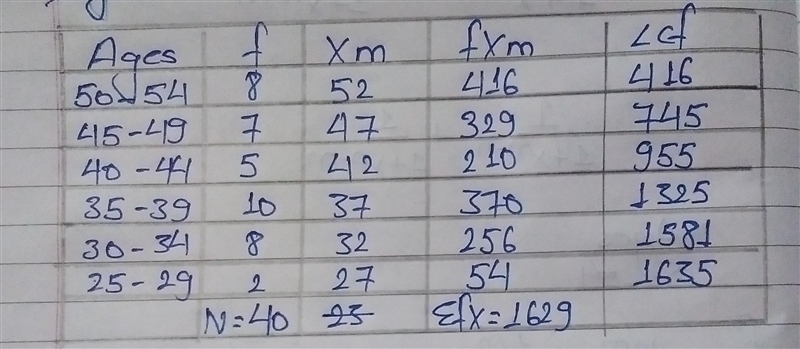 Ages f Xm fXm <cf
50-54 8 52 416 416
45-49 7 47 329 745
40-44 5 42 210 955
35-39 10 37 370 1325
30-34 8 32 256 1581
25-29 2 27 54 1635
N=40 23 Σfx=1629